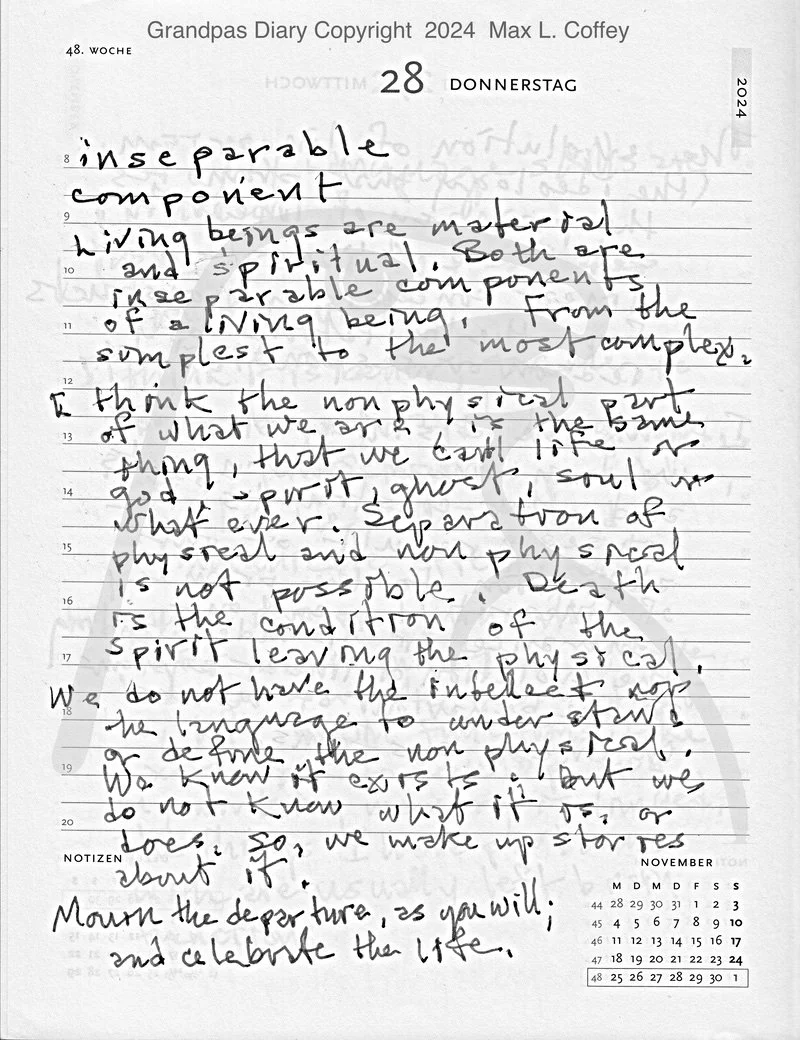 Grandpas Diary Copyright 2024 Max L. Coffey
48. WOCHE
28 DONNERSTAG
2024
8 inseparable
component
9
Living beings are material
and spiritual. Both are
10
inseparable components
of a living being. From the
11
simplest to the most complex.
12
I think the nonphysical part
of what we are is the same
13
thing, that we call life or
god, spirit, ghost, soul or
14
what ever. Separation of
15
physical and non physical
is not possible. Death
16
is the condition of the
spirit leaving the physical.
17
We do not have the intellect nor
18
the language to understand
or define the non physical.
19
We know it exists; but we
do not know what it is, or
20
does. So, we make up stories
about it.
Mourn the departure, as you will;
and celebrate the life.
NOTIZEN
NOVEMBER
M D M D F S S
44 28 29 30 31 1 2 3
45 4 5 6 7 8 9 10
46 11 12 13 14 15 16 17
47 18 19 20 21 22 23 24
48 25 26 27 28 29 30 1